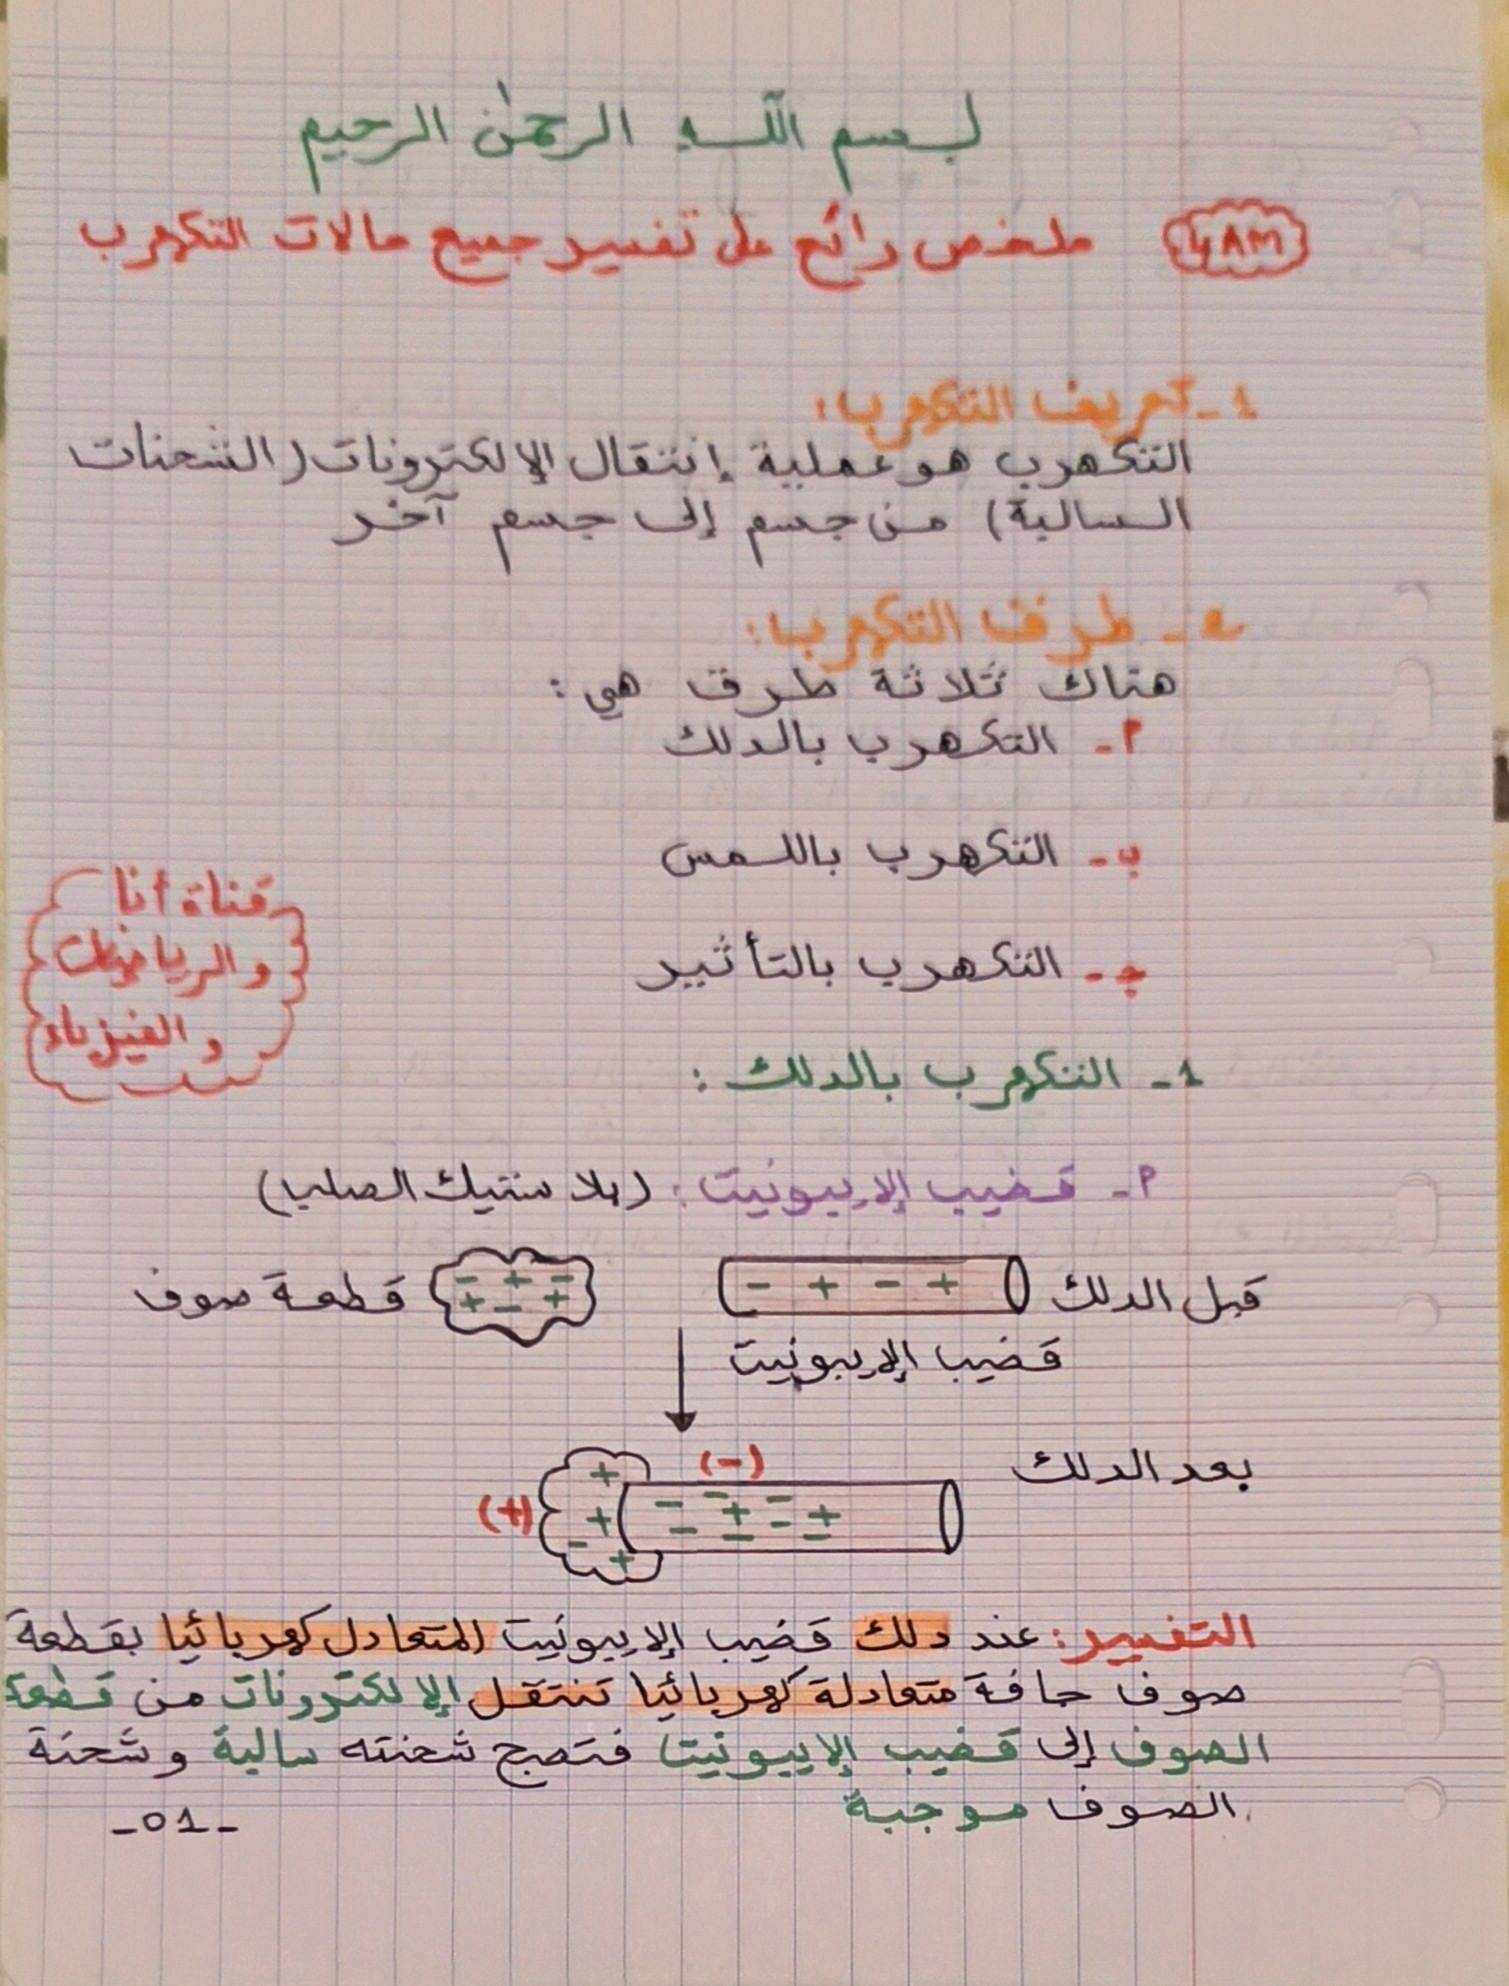 بسم الله الرحمٰن الرحيم
4AM ملخص رائع على تفسير جميع حالات التكهرب
1- تعريف التكهرب:
التكهرب هو عملية إنتقال الإلكترونات (الشحنات
السالبة) من جسم إلى جسم آخر
2- طرق التكهرب:
هناك ثلاثة طرق هي:
أ- التكهرب بالدلك
ب- التكهرب باللمس
ج- التكهرب بالتأثير
قناة أنا
والرياضيات
والفيزياء
1- التكهرب بالدلك:
أ- قضيب الإيبونيت: (بلاستيك الصلب)
قبل الدلك - + - + - + - + - + قطعة صوف
قضيب الإيبونيت
بعد الدلك
(-)
(+) + + - + - - - + + - - - -
التفسير: عند دلك قضيب الإيبونيت المتعادل كهربائيا بقطعة
صوف جافة متعادلة كهربائيا تنتقل الإلكترونات من قطعة
الصوف إلى قضيب الإيبونيت فتصبح شحنته سالبة وشحنة
الصوف موجبة
-01-